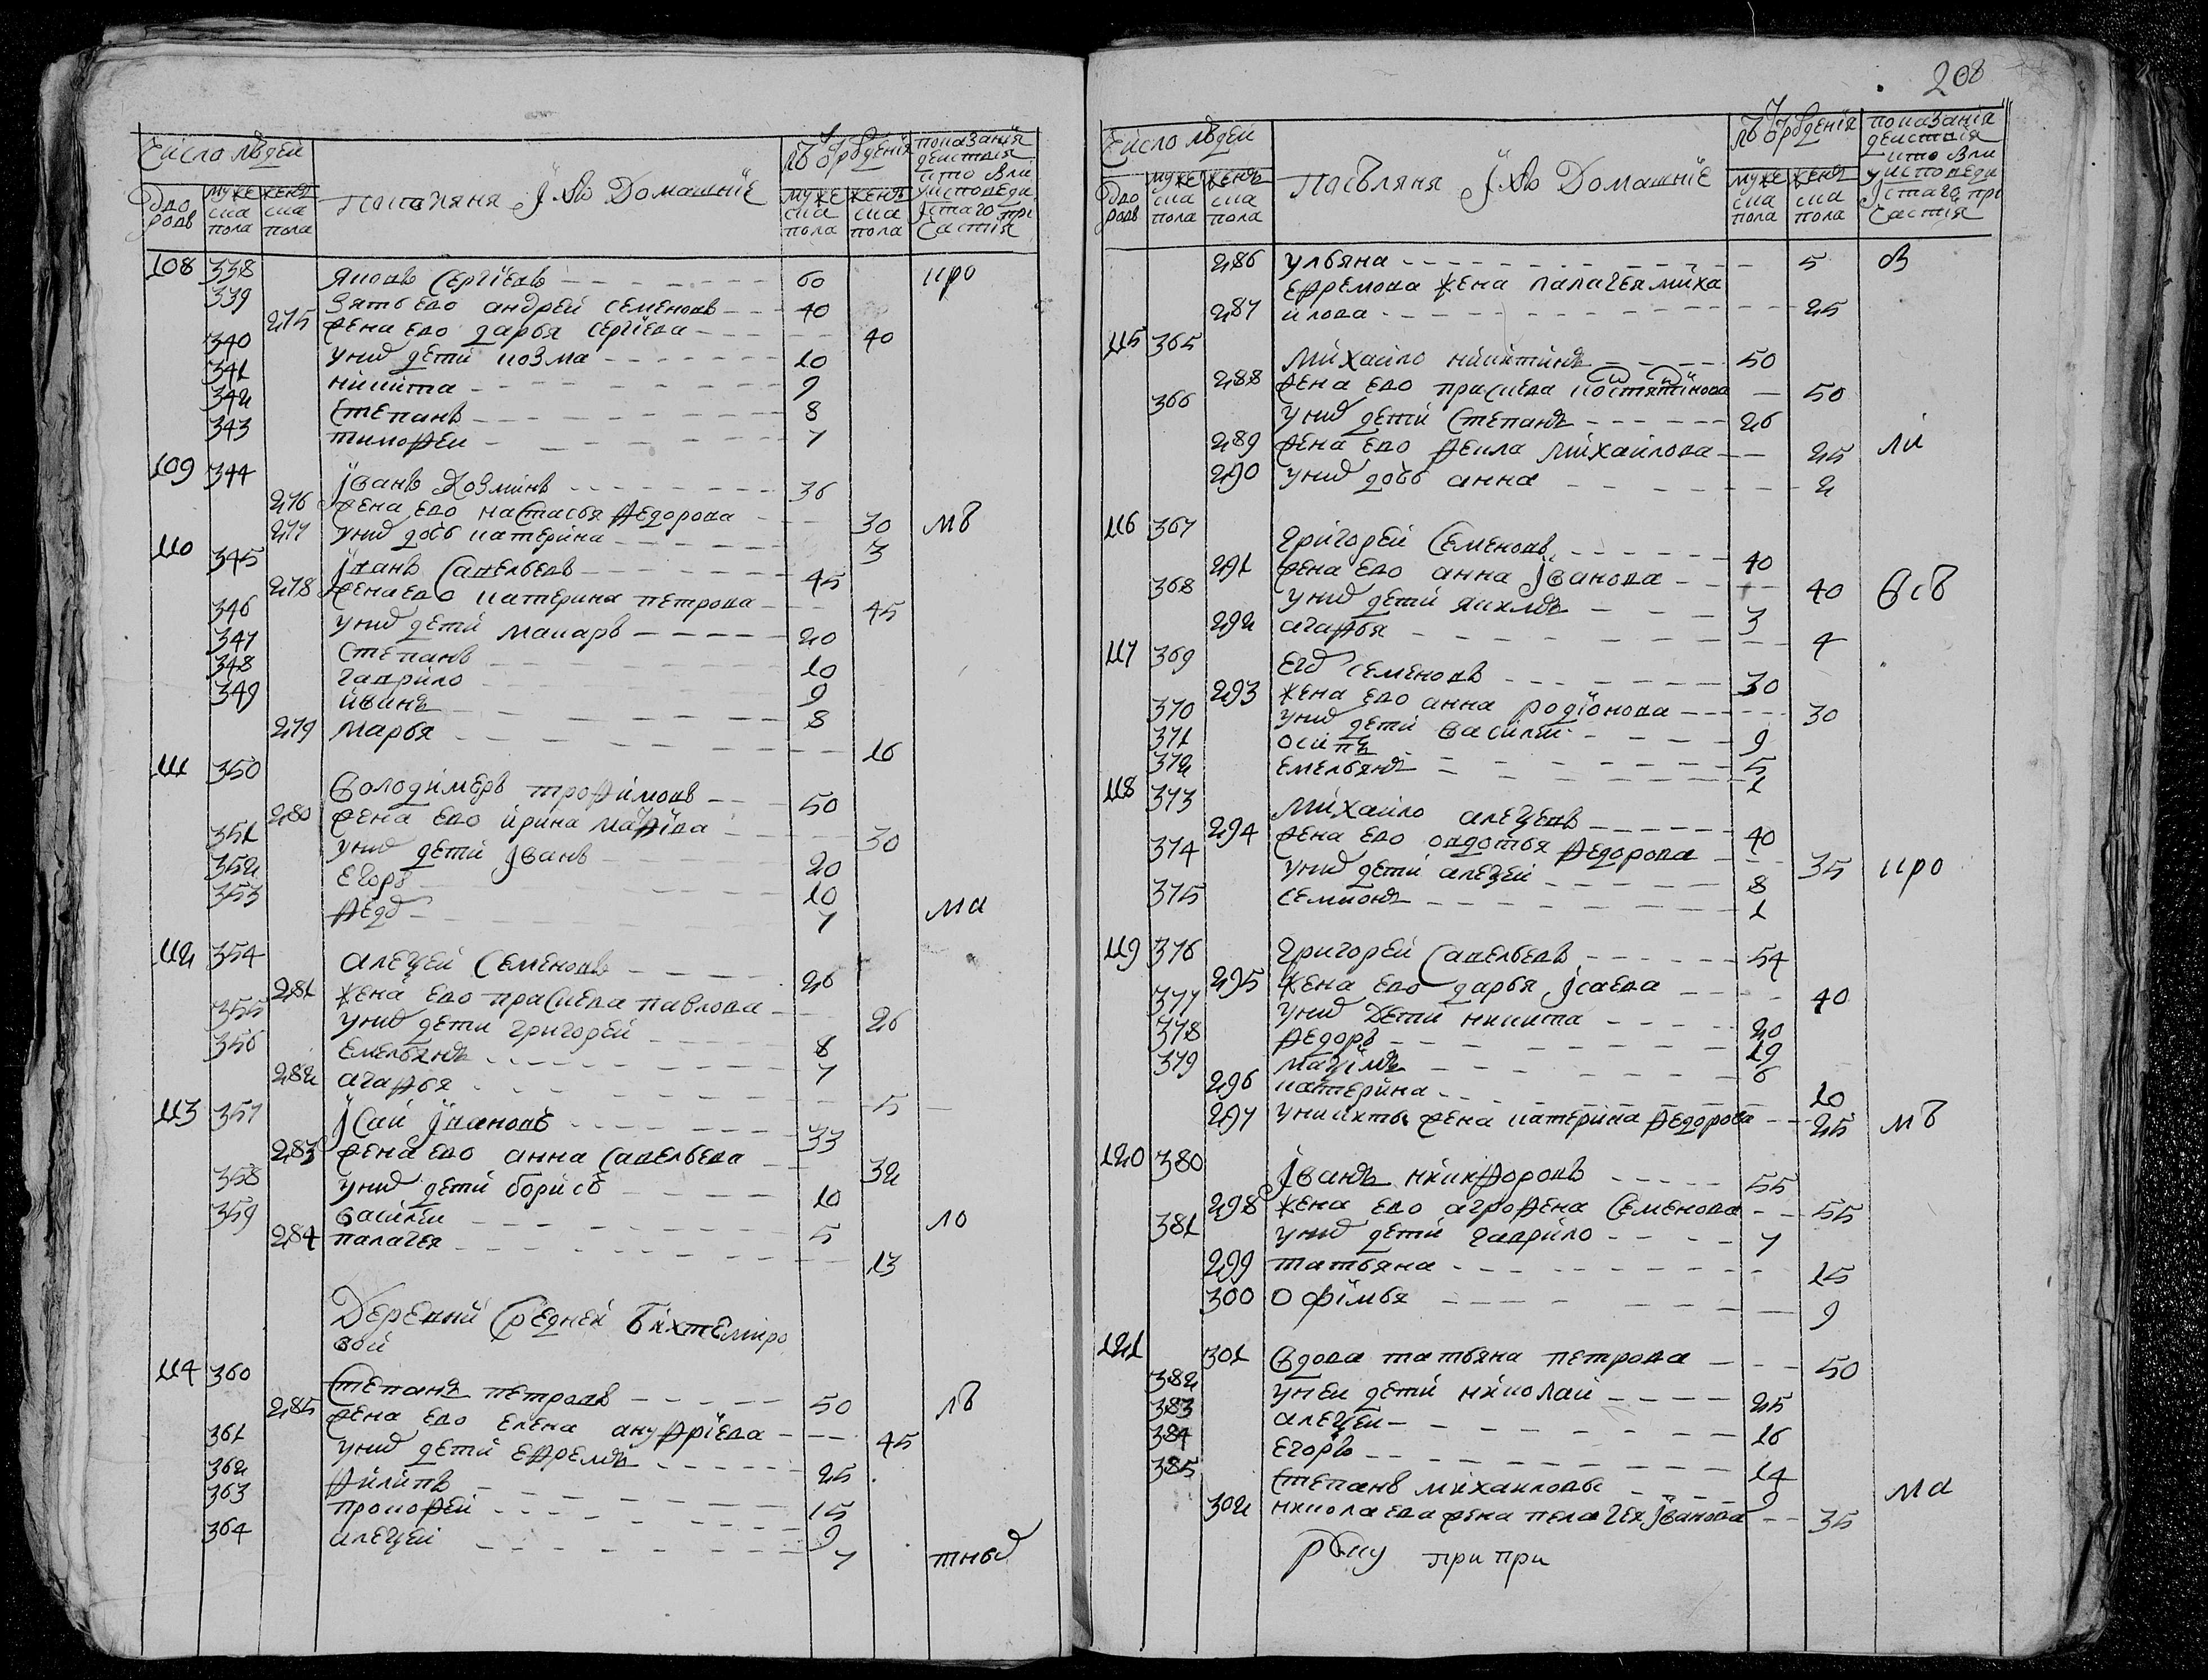 Число людей
Дво
ровъ
муже
ска
пола
женъ
ска
пола
Посацкия и ихъ Домашние
Лѣ о рождения
муже
ска
пола
женъ
ска
пола
показания
действия
кто были
у исповеди
и стаго при
частия
108 338 Яковъ Сергіевъ 60 кро
339 Зять ево андрей семеновъ 40
275 жена ево дарья сергіева 40
340 у них дети козма 10
341 никита 9
342 степанъ 8
343 тимофеи 7
109 344 Iванъ Козминъ 36
276 жена ево настасья федорова 30 мѣ
277 у них дочь катерина 3
110 345 Iванъ савельевъ 45
278 жена ево катерина петрова 45
346 у них дети макаръ 20
347 Степанъ 10
348 гаврило 9
349 иванъ 8
279 марья 16
111 350 Володимеръ трофимовъ 50
280 жена ево ирина 30
351 у них дети Iванъ 20
352 Егоръ 10
353 федо 7 ма
112 354 алеѯей Семеновъ 26
281 жена ево прасковя павлова 26
355 у них дети григорей 8
356 Емельянъ 7
282 агафья 5
113 357 Iсай Iвановъ 33
283 жена ево анна савельева 32
358 у них дети борисъ 10
359 василеи 5 ло
284 палагея 13
Деревни Средней Бихтемиро
вой
114 360 Степанъ петровъ 50 лѣ
285 жена ево елена ануфріева 45
361 у них дети ефремъ 25
362 филипъ 15
363 прокофей 9
364 алеѯей 7 тных
208
Число людей
Дво
ровъ
муже
ска
пола
женъ
ска
пола
Посацкия и ихъ Домашние
Лѣ о рождения
муже
ска
пола
женъ
ска
пола
показания
действия
кто были
у исповеди
и стаго при
частия
286 ульяна 5 в
Ефремова жена палагея миха
287 илова 25
115 365 михаило никитинъ 50
288 жена ево прасковя костятинова 50
366 у них дети степанъ 26
289 жена ево фекла михаилова 25 ли
290 у них дочь анна 2
116 367 Григорей Семеновъ 40
291 жена ево анна Iванова 40 всѣ
368 у них дети якимъ 3
292 агафья 4
117 369 Его семеновъ 30
293 жена ево анна родіонова 30
370 у них дети василеи 9
371 осипъ 5
372 емельянъ 1
118 373 михаило алеѯевъ 40
294 жена ево овдотья федорова 35 кро
374 у них дети алеѯей 8
375 семионъ 1
119 376 Григорей Савельевъ 54
295 жена ево дарья Iсаева 40
377 у них Дети никита 20
378 федоръ 19
379 маѯімъ 6
296 катерина 10
297 у никиты жена катерина федорова 25 мѣ
120 380 Iванъ никифоровъ 55
298 жена ево агрофена Семенова 55
381 у них дети гаврило 7
299 татьяна 15
300 офимья 9
121 301 вдова татьяна петрова 50
382 у неи дети николаи 25
383 алеѯеи 16
384 егоръ 14
385 степанъ михаиловы 9 ма
302 николаева жена пелагея Iванова 35
при при